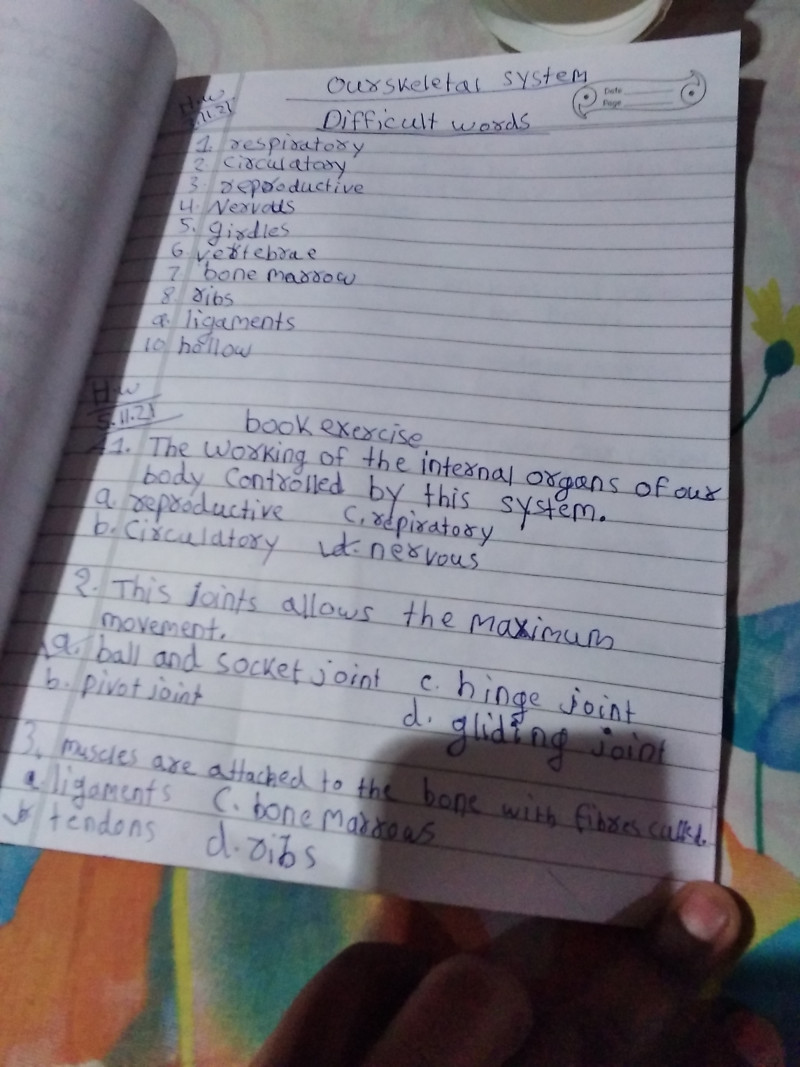 Our skeletal system
Date
Page
H.w
5.11.21
Difficult words
1. respiratory
2. Circulatory
3. reproductive
4. Nervous
5. girdles
6 vertebrae
7. bone marrow
8. ribs
9. ligaments
10 hollow
H.w
5.11.21
book exercise
1. The working of the internal organs of our
body Controlled by this system.
a. reproductive C. repiratory
b. Circulatory d. nervous
2. This joints allows the Maximum
movement.
a. ball and socket joint c. hinge joint
b. pivot joint
d. gliding joint
3. muscles are attached to the bone with fibres called.
a. ligaments C. bone Marrows
b tendons d. ribs